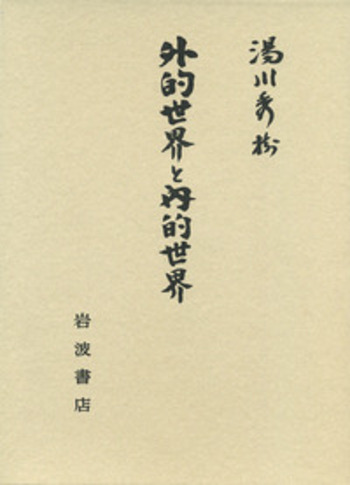 湯川秀樹
外的世界と内的世界
岩波書店